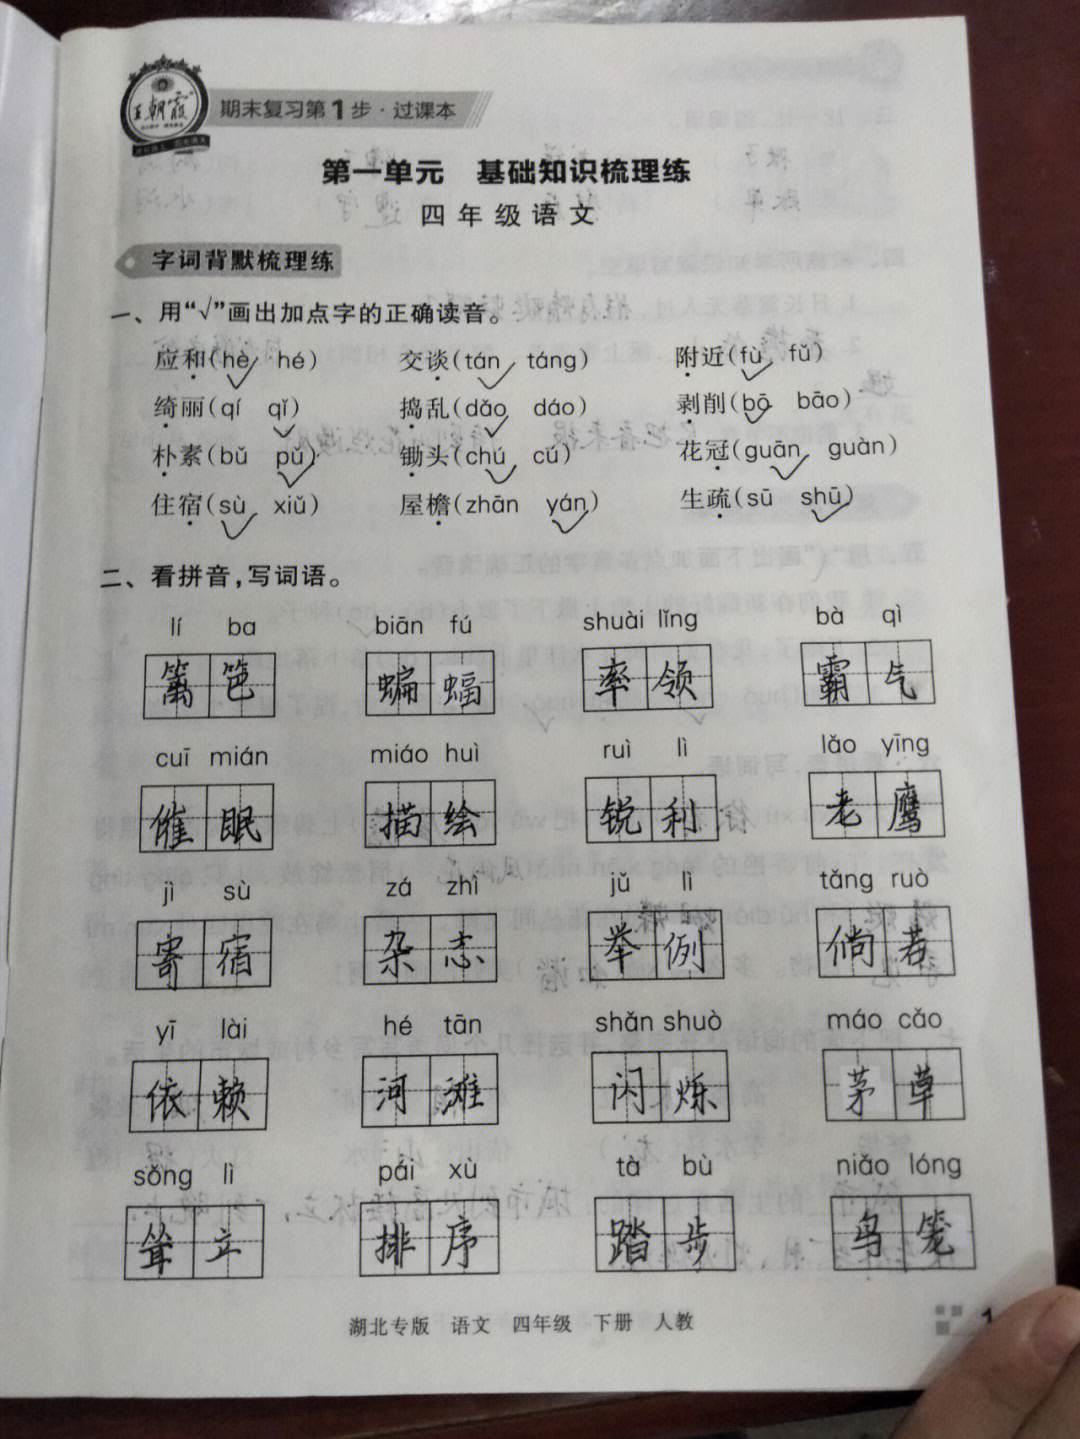 王朝霞
期末复习第1步·过课本
第一单元 基础知识梳理练
四年级语文
字词背默梳理练
一、用“√”画出加点字的正确读音。
应和(hè√ hé) 交谈(tán√ táng) 附近(fù√ fǔ)
绮丽(qí qǐ√) 捣乱(dǎo√ dáo) 剥削(bō√ bāo)
朴素(bǔ pǔ√) 锄头(chú√ cú) 花冠(guān√ guàn)
住宿(sù√ xiǔ) 屋檐(zhān yán√) 生疏(sū shū√)
二、看拼音,写词语。
lí ba biān fú shuài lǐng bà qì
篱笆 蝙蝠 率领 霸气
cuī mián miáo huì ruì lì lǎo yīng
催眠 描绘 锐利 老鹰
jì sù zá zhì jǔ lì tǎng ruò
寄宿 杂志 举例 倘若
yī lài hé tān shǎn shuò máo cǎo
依赖 河滩 闪烁 茅草
sǒng lì pái xù tà bù niǎo lóng
耸立 排序 踏步 鸟笼
湖北专版 语文 四年级 下册 人教
1